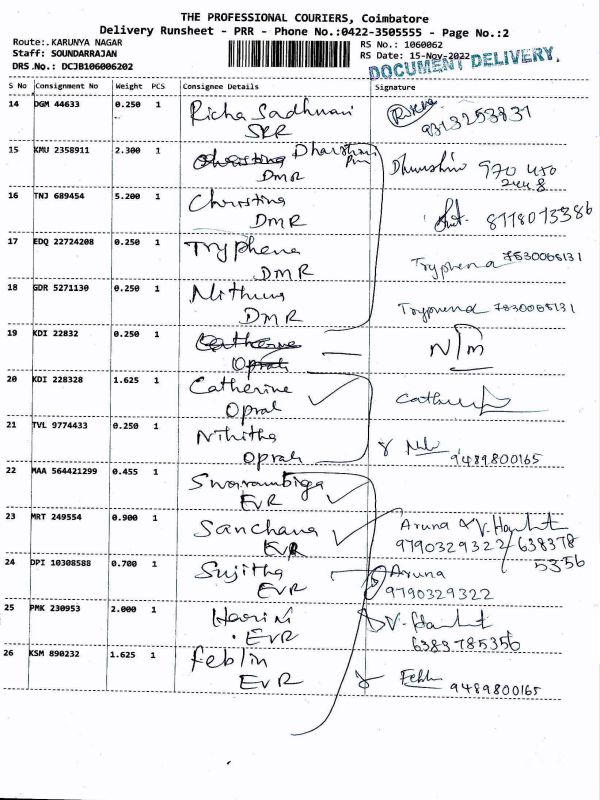 THE PROFESSIONAL COURIERS, Coimbatore
Delivery Runsheet - PRR - Phone No.:0422-3505555 - Page No.:2
Route:.KARUNYA NAGAR
RS No.: 1060062
Staff: SOUNDARRAJAN
RS Date: 15-Nov-2022
DRS .No.: DCJB106006202
DOCUMENT DELIVERY.
S No Consignment No Weight PCS Consignee Details Signature
14 DGM 44633 0.250 1 Richa Sadhwani
SRR 9313253831
15 KMU 2358911 2.300 1 Dharshini
DMR Dharshini 970 450
2448
16 TNJ 689454 5.200 1 Christina
DMR 8778073386
17 EDQ 22724208 0.250 1 Tryphena
DMR Tryphena 7530065131
18 GDR 5271130 0.250 1 Nithus
DMR Tryphena 7530065131
19 KDI 22832 0.250 1 Catherine
Opral N/M
20 KDI 228328 1.625 1 Catherine
Opral Catherine
21 TVL 9774433 0.250 1 Nihitha
Opral 9489800165
22 MAA 564421299 0.455 1 Swarambiga
EVR
23 MRT 249554 0.900 1 Sanchana
EVR Aruna & V. Hanhit
9790329322/638378
5356
24 DPI 10308588 0.700 1 Sujitha
EVR Aruna
9790329322
25 PMK 230953 2.000 1 Harini
EVR V. Hanhit
6383785356
26 KSM 890232 1.625 1 Feblin
EVR Feblin 9489800165